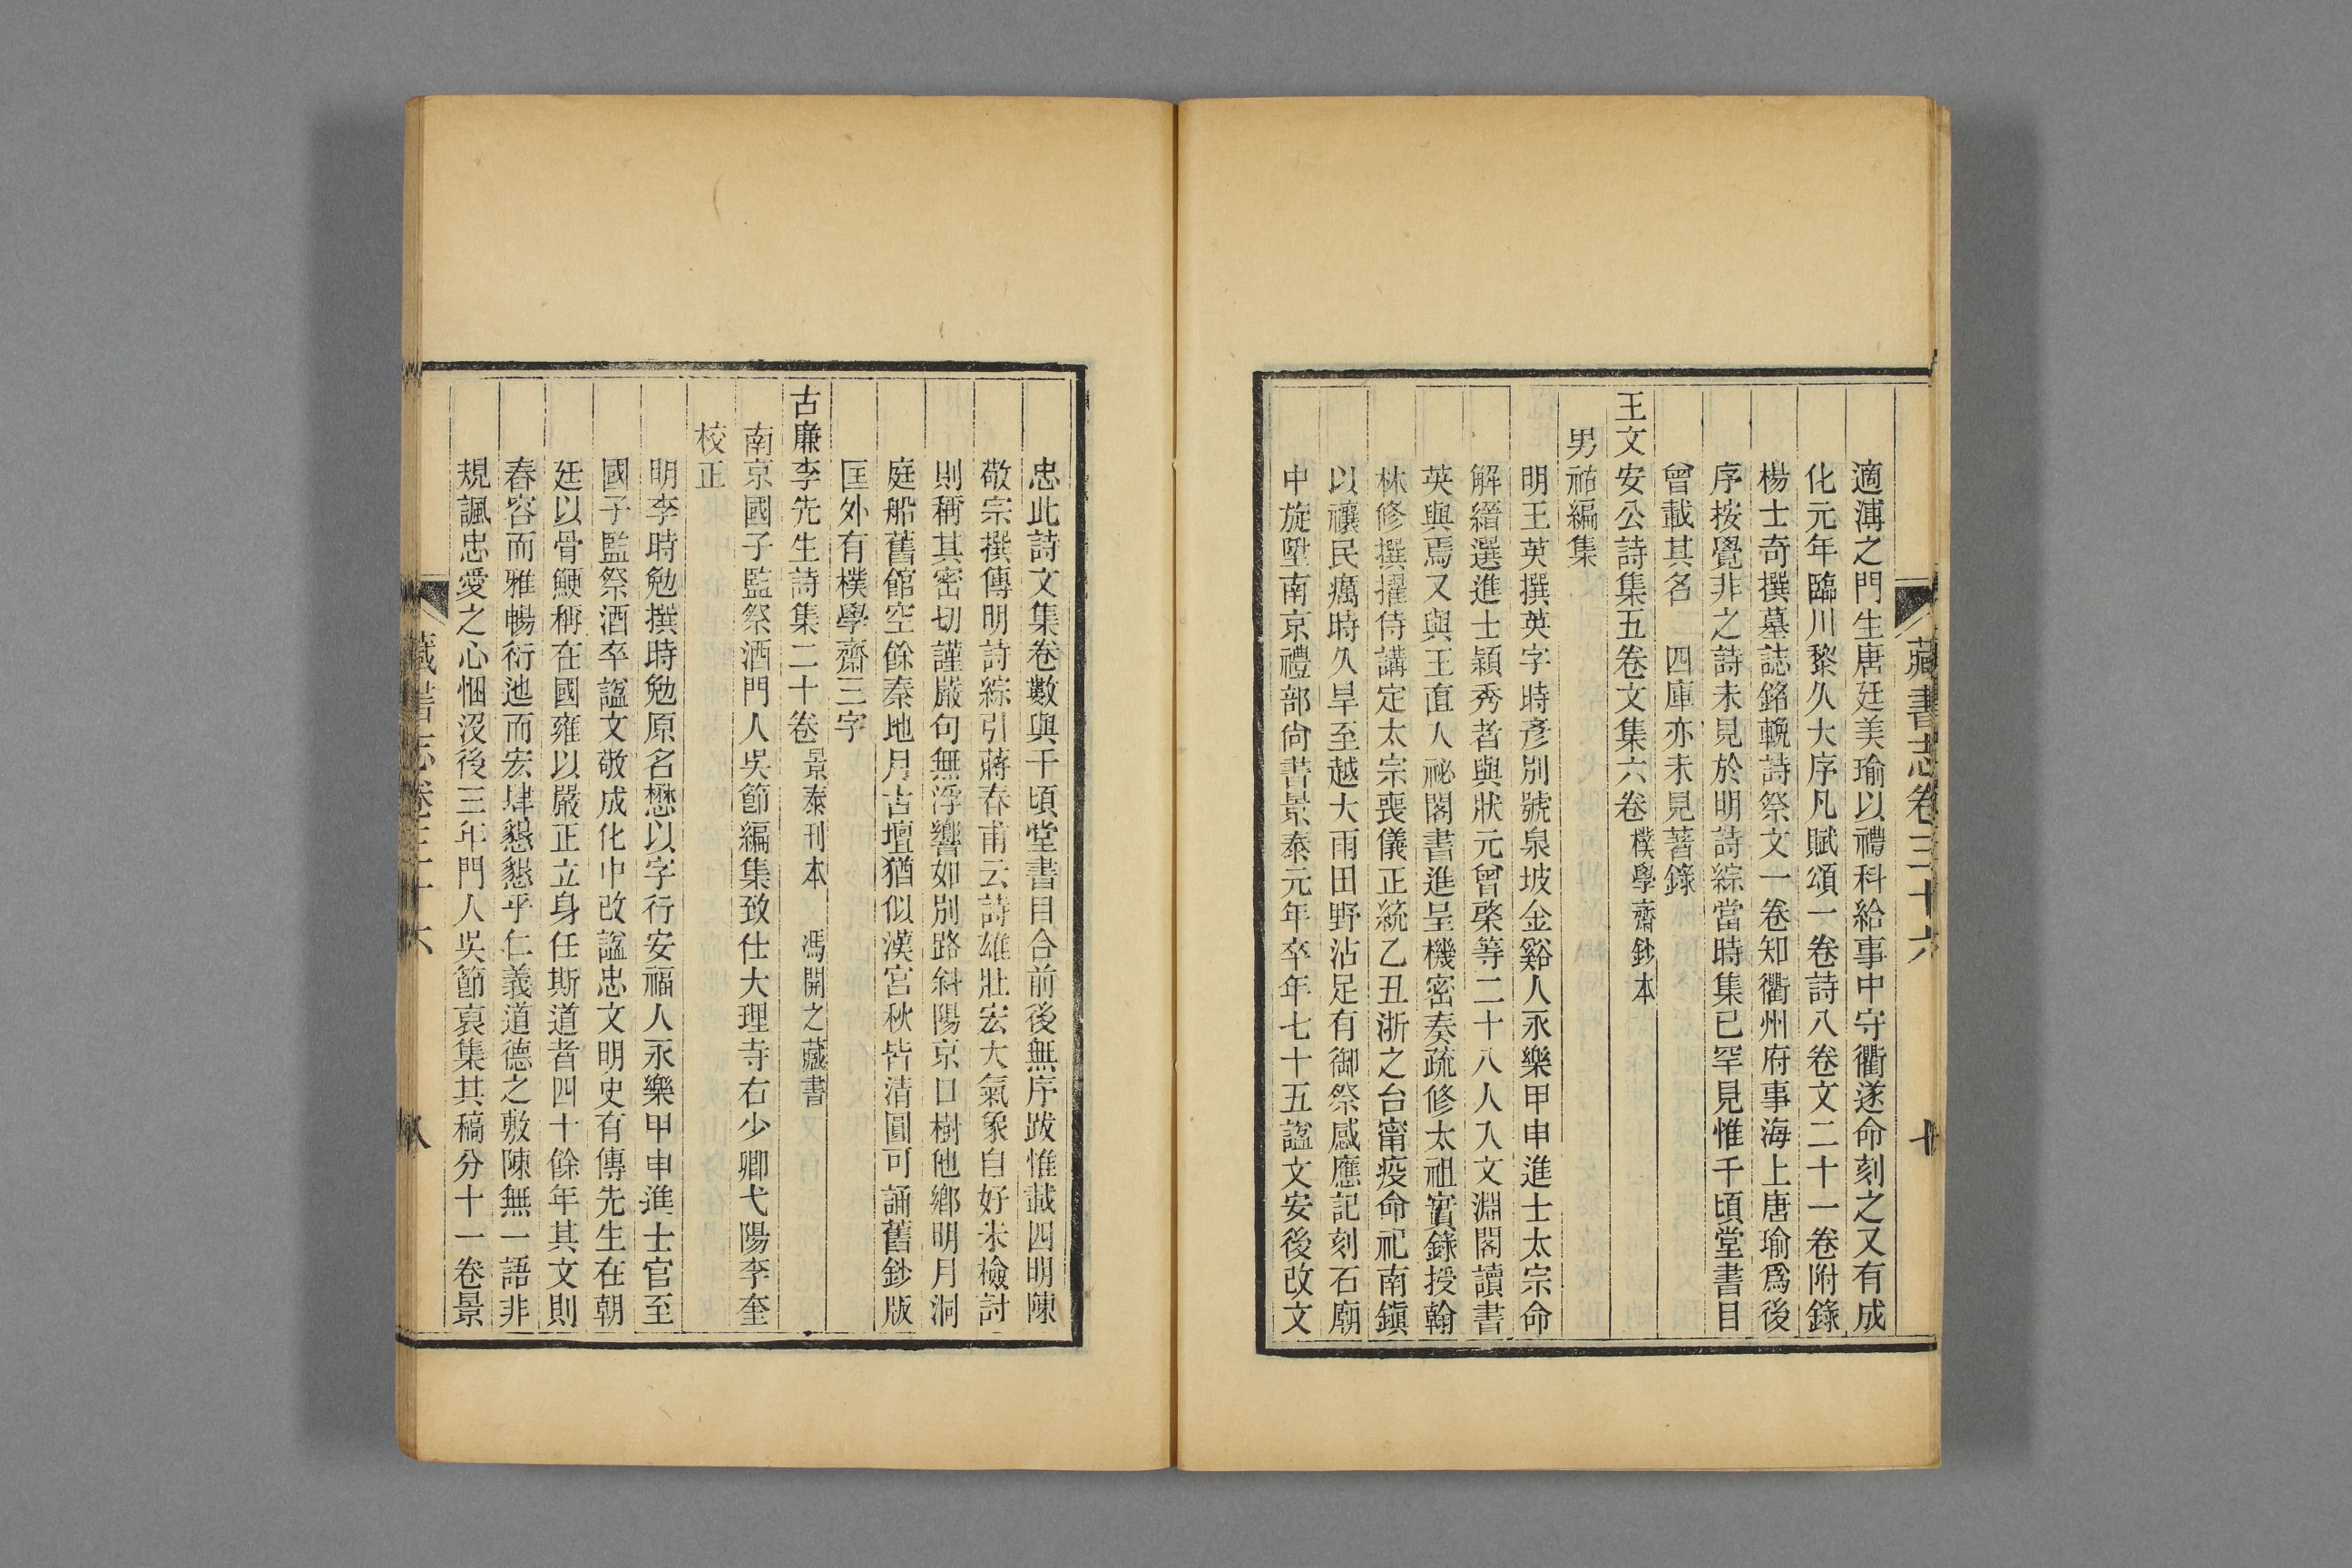 藏書志卷三十六
適溥之門生唐廷美瑜以禮科給事中守衢遂命刻之又有成
化元年臨川黎久大序凡賦頌一卷詩八卷文二十一卷附錄
楊士奇撰墓誌銘輓詩祭文一卷知衢州府事海上唐瑜爲後
序按覺非之詩未見於明詩綜當時集已罕見惟千頃堂書目
曾載其名　四庫亦未見著錄
王文安公詩集五卷文集六卷　樸學齋鈔本
男祏編集
明王英撰英字時彥別號泉坡金谿人永樂甲申進士太宗命
解縉選進士穎秀者與狀元曾棨等二十八人入文淵閣讀書
英與焉又與王直入祕閣書進呈機密奏疏修太祖實錄授翰
林修撰擢侍講定太宗喪儀正統乙丑浙之台甯疫命祀南鎭
以禳民癘時久旱至越大雨田野沾足有御祭感應記刻石廟
中旋陞南京禮部尙書景泰元年卒年七十五謚文安後改文
忠此詩文集卷數與千頃堂書目合前後無序跋惟載四明陳
敬宗撰傳明詩綜引蔣春甫云詩雄壯宏大氣象自好朱檢討
則稱其密切謹嚴句無浮響如別路斜陽京口樹他鄉明月洞
庭船舊館空餘秦地月古壇猶似漢宮秋皆淸圓可誦舊鈔版
匡外有樸學齋三字
古廉李先生詩集二十卷　景泰刊本　馮開之藏書
南京國子監祭酒門人吳節編集致仕大理寺右少卿弋陽李奎
校正
明李時勉撰時勉原名懋以字行安福人永樂甲申進士官至
國子監祭酒卒謚文敬成化中改謚忠文明史有傳先生在朝
廷以骨鯁稱在國雍以嚴正立身任斯道者四十餘年其文則
舂容而雅暢衍迆而宏肆懇懇乎仁義道德之敷陳無一語非
規諷忠愛之心悃沒後三年門人吳節裒集其稿分十一卷景
藏書志卷三十六
八